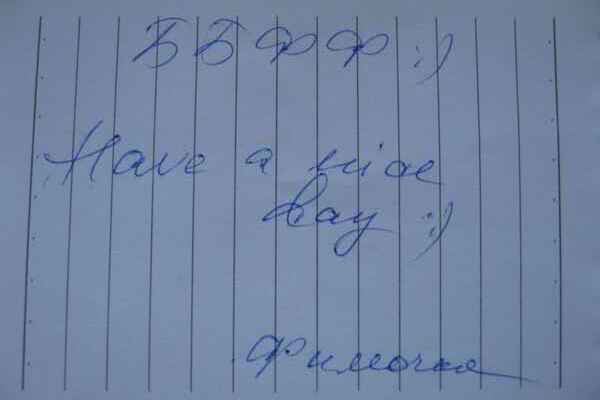 ББФФ :)
Have a nice
day :)
Фимочка